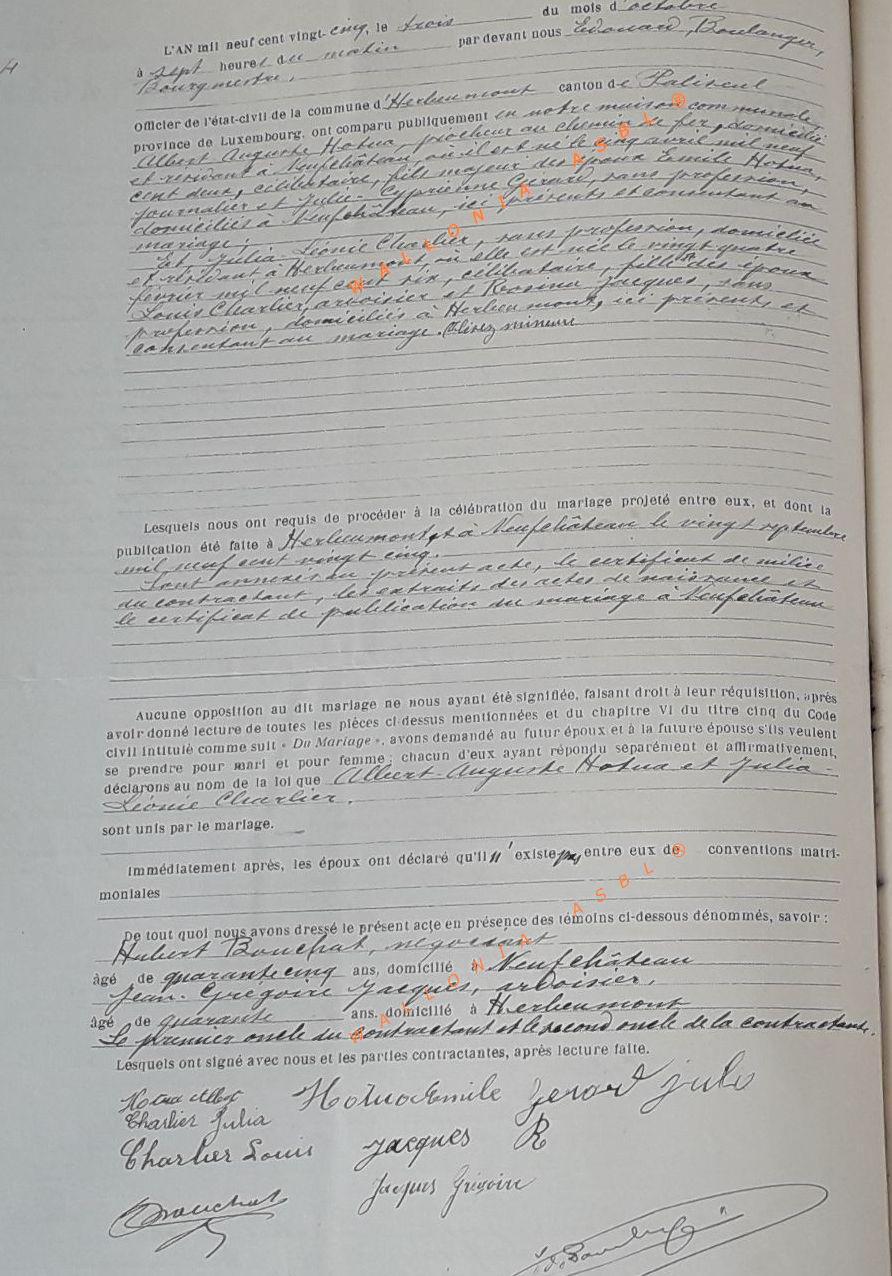 L'AN mil neuf cent vingt-cinq, le trois du mois d'octobre
à sept heures du matin par devant nous Edouard Boulanger,
Bourgmestre,
Officier de l'état-civil de la commune d'Herbeumont canton de Paliseul
province de Luxembourg, ont comparu publiquement en notre maison communale,
Albert Auguste Hotua, piocheur au chemin de fer, domicilié
et résidant à Neufchâteau, où il est né le cinq avril mil neuf
cent deux, célibataire, fils majeur des époux Emile Hotua,
journalier et Julie-Cyprienne Gerard, sans profession,
domiciliés à Neufchâteau, ici présents et consentant au
mariage;
Et Julia-Léonie Charlier, sans profession, domiciliée
et résidant à Herbeumont, où elle est née le vingt quatre
février mil neuf cent six, célibataire, fille des époux
Louis Charlier, ardoisier et Jacques, sans
profession, domiciliés à Herbeumont, ici présents et
consentant au mariage. mineure
Lesquels nous ont requis de procéder à la célébration du mariage projeté entre eux, et dont la
publication été faite à Herbeumont et à Neufchâteau le vingt septembre
mil neuf cent vingt cinq.
Sont annexés au présent acte, le certificat de milice
du contractant, les extraits des actes de naissance et
le certificat de publication du mariage à Neufchâteau
Aucune opposition au dit mariage ne nous ayant été signifiée, faisant droit à leur réquisition, après
avoir donné lecture de toutes les pièces ci-dessus mentionnées et du chapitre VI du titre cinq du Code
civil intitulé comme suit « Du Mariage », avons demandé au futur époux et à la future épouse s'ils veulent
se prendre pour mari et pour femme; chacun d'eux ayant répondu séparément et affirmativement,
déclarons au nom de la loi que Albert-Auguste Hotua et Julia-
Léonie Charlier.
sont unis par le mariage.
Immédiatement après, les époux ont déclaré qu'il n'existe pas entre eux de conventions matri-
moniales
De tout quoi nous avons dressé le présent acte en présence des témoins ci-dessous dénommés, savoir :
Hubert Bouchat, négociant
âgé de quarante cinq ans, domicilié à Neufchâteau
Jean-Grégoire Jacques, ardoisier,
âgé de quarante ans, domicilié à Herbeumont
Le premier oncle du contractant et le second oncle de la contractante.
Lesquels ont signé avec nous et les parties contractantes, après lecture faite.
Hotua Albert Hotua Emile Gerard Julie
Charlier Julia
Charlier Louis Jacques R
Bouchat Jacques Grégoire
WALLONIA ASBL ®
WALLONIA ASBL ®